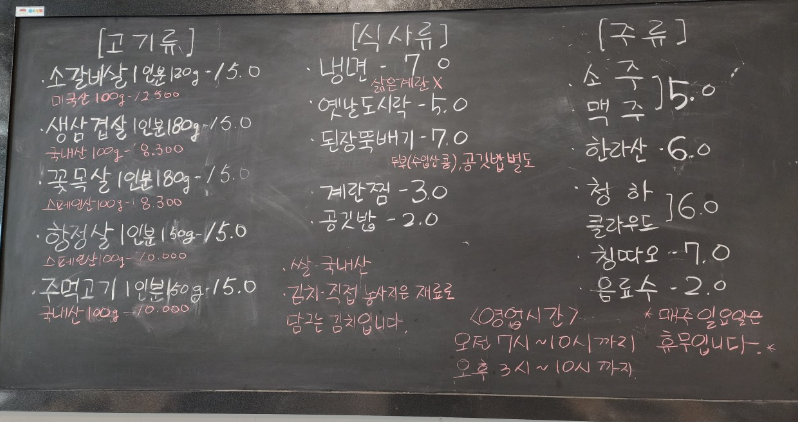 [고기류]
· 소갈비살 1인분 120g - 15.0
미국산 100g - 12.500
· 생삼겹살 1인분 180g - 15.0
국내산 100g - 8.300
· 꽃목살 1인분 180g - 15.0
스페인산 100g - 8.300
· 항정살 1인분 150g - 15.0
스페인산 100g - 10.000
· 주먹고기 1인분 150g - 15.0
국내산 100g - 10.000
[식사류]
· 냉면 - 7.0
삶은계란 X
· 옛날도시락 - 5.0
· 된장뚝배기 - 7.0
두부(수입산 콩), 공깃밥 별도
· 계란찜 - 3.0
· 공깃밥 - 2.0
· 쌀 국내산
· 김치 - 직접 농사지은 재료로
담그는 김치입니다.
[주류]
· 소주
· 맥주 ] 5.0
· 한라산 - 6.0
· 청하
클라우드 ] 6.0
· 칭따오 - 7.0
· 음료수 - 2.0
<영업시간>
오전 7시 ~ 10시 까지
오후 3시 ~ 10시 까지
* 매주 일요일은
휴무입니다. *